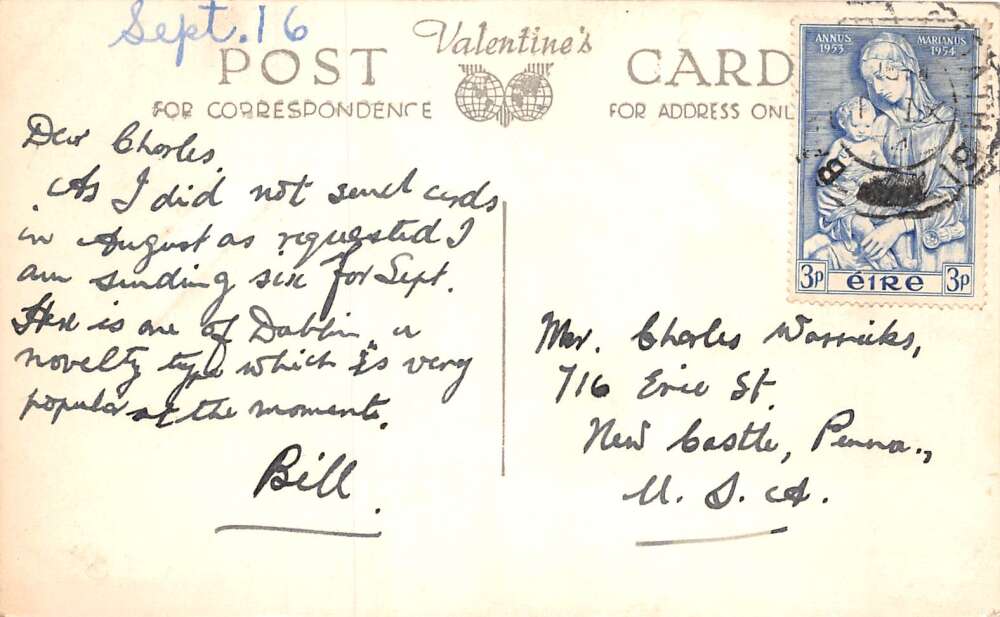 Sept. 16
Valentine's
POST CARD
FOR CORRESPONDENCE
FOR ADDRESS ONL
ANNUS 1953
MARIANUS 1954
3p ÉIRE 3p
Dear Charles,
As I did not send cards
in August as requested I
am sending six for Sept.
Here is one of Dublin, a
novelty type which is very
popular at the moment.
Bill.
Mr. Charles Warnicks,
716 Erie St.
New Castle, Penna.,
U. S. A.